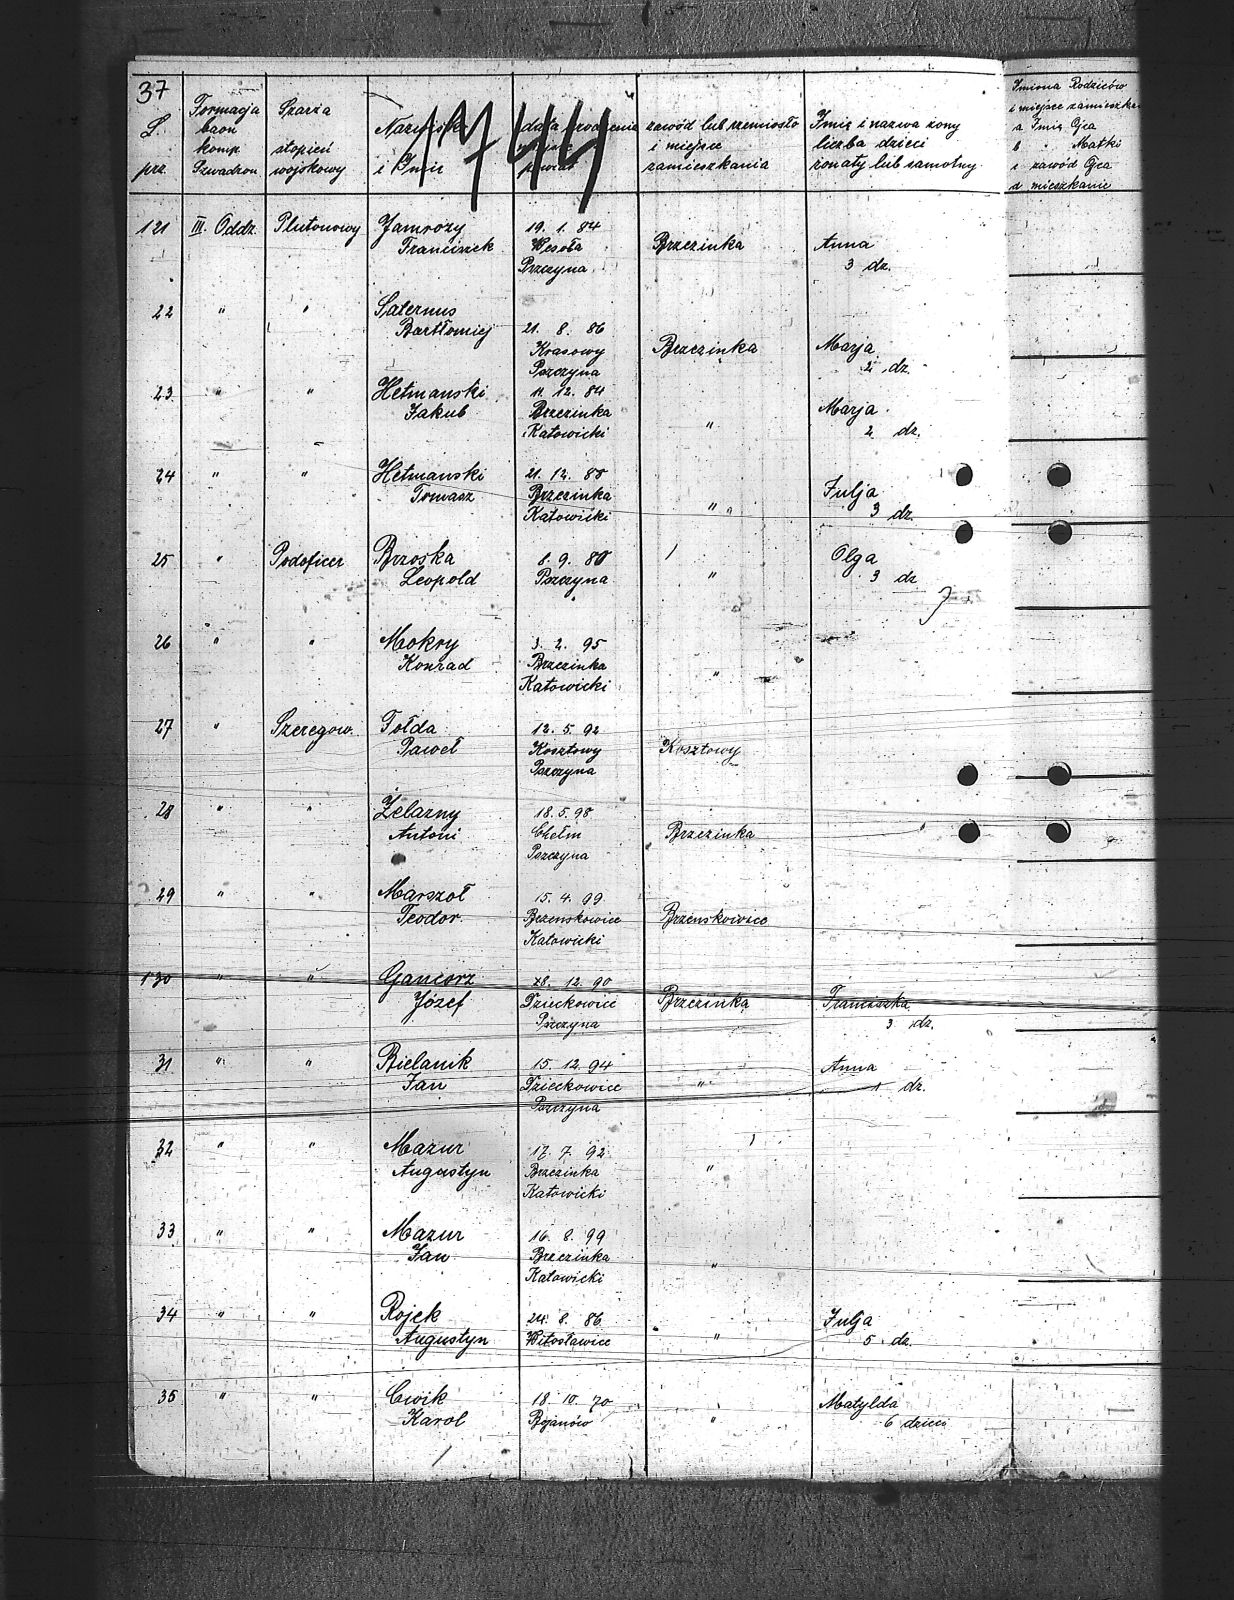 37
L. prz.
Formacja baon komp Szwadron
Szarża stopień wojskowy
Nazwisko i Imię
data urodzenia powiat
zawód lub rzemiosło i miejsce zamieszkania
Imię i nazwa żony liczba dzieci żonaty lub samotny
Imiona Rodziców i miejsce zamieszk
a Imię Ojca
b " Matki
c zawód Ojca
d mieszkanie
1744
121 III. Oddz. Plutonowy Jamrozy 19. 1. 84
Franciszek Wesoła Brzezinka Anna
Pszczyna 3 dz.
22 " " Saternus
Bartłomiej 21. 8. 86
Krasowy Brzezinka Marja
Pszczyna 2 dz.
23 " " Hetmanski 11. 12. 84
Jakub Brzezinka Marja
Katowicki " 2 dz.
24 " " Hetmanski 21. 12. 88
Tomasz Brzezinka Julja
Katowicki " " 3 dz.
25 " Podoficer Brzoska 8. 9. 88 Olga
Leopold Pszczyna " 3 dz
26 " " Mokry 3. 2. 95
Konrad Brzezinka
Katowicki "
27 " Szeregow. Fołda 12. 5. 92
Paweł Kosztowy Kosztowy
Pszczyna
28 " " Żelazny 18. 5. 98
Antoni Chełm Brzezinka
Pszczyna
29 " " Marszoł 15. 4. 99
Teodor Brzenskowice Brzenskowice
Katowicki
130 " " Gancorz 28. 12. 90
Józef Dzieckowice Brzezinka Franciszka
Pszczyna 3 dz.
31 " " Bielanik 15. 12. 94 Anna
Jan Dzieckowice " 1 dz.
Pszczyna
32 " " Mazur 17. 7. 92
Augustyn Brzezinka "
Katowicki
33 " " Mazur 16. 8. 99
Jan Brzezinka
Katowicki "
34 " " Rojek 24. 8. 86 Julja
Augustyn Witosławice " 5 dz.
35 " " Cwik 18. 10. 70 Matylda
Karol Bojanów " 6 dzieci